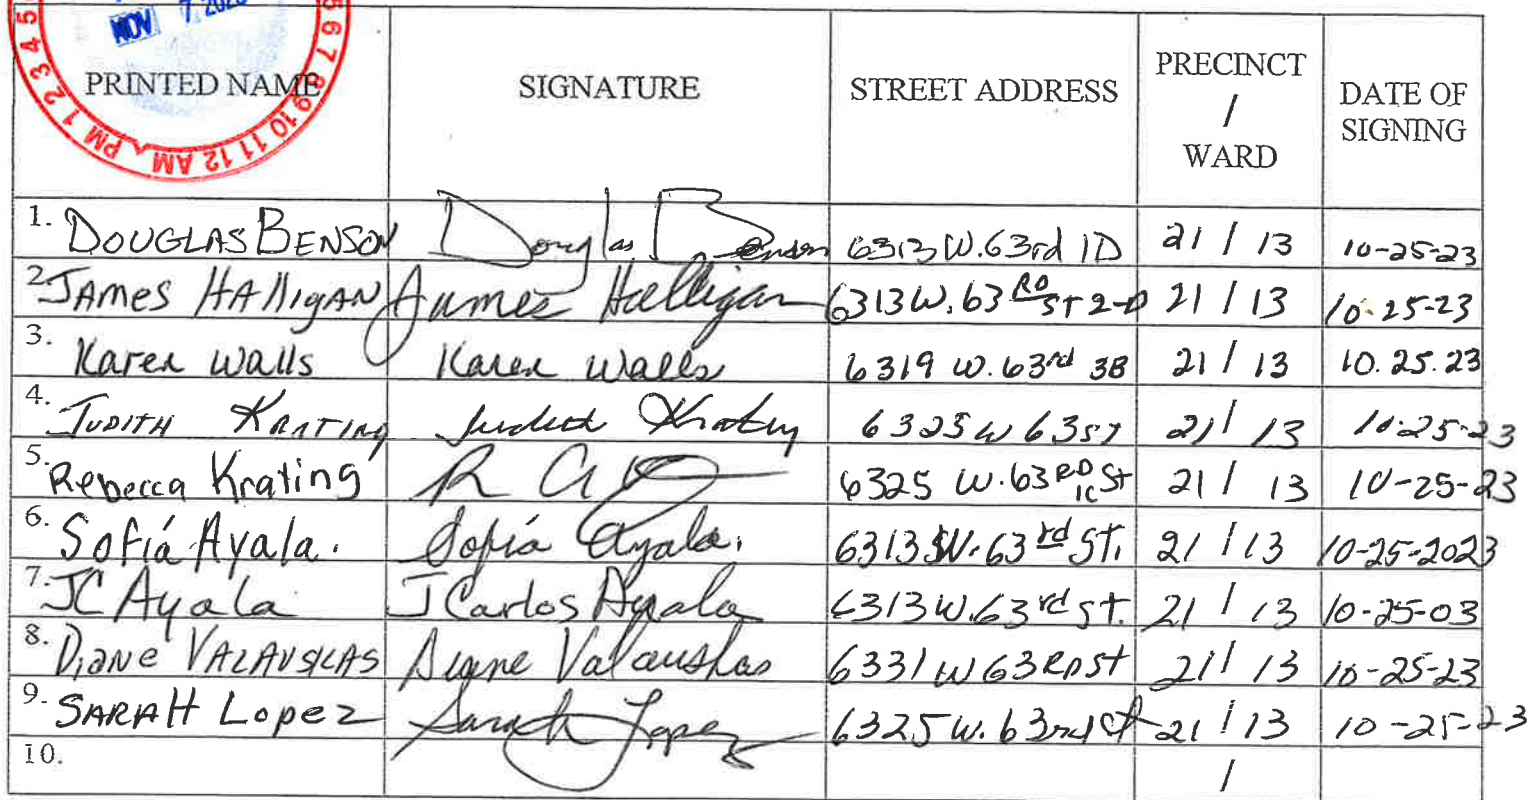 NOV 7 2023
5 4 3 2 1 PM
5 6 7 8 9 10 11 12 AM
PRINTED NAME SIGNATURE STREET ADDRESS PRECINCT / WARD DATE OF SIGNING
1. DOUGLAS BENSON Douglas Benson 6313 W. 63rd 1D 21 / 13 10-25-23
2. JAMES HALLIGAN James Halligan 6313 W. 63 RD ST 2-D 21 / 13 10-25-23
3. Karen Walls Karen Walls 6319 W. 63rd 3B 21 / 13 10.25.23
4. JUDITH KRATING Judith Krating 6325 W 63 ST 21 / 13 10-25-23
5. Rebecca Krating 6325 W. 63 RD St 1C 21 / 13 10-25-23
6. Sofía Ayala. Sofía Ayala. 6313 W. 63rd St. 21 / 13 10-25-2023
7. JC Ayala J Carlos Ayala 6313 W. 63rd St. 21 / 13 10-25-03
8. Diane VALAUSKAS Diane Valauskas 6331 W 63 RD St 21 / 13 10-25-23
9. SARAH Lopez Sarah Lopez 6325 W. 63rd St 21 / 13 10-25-23
10. /